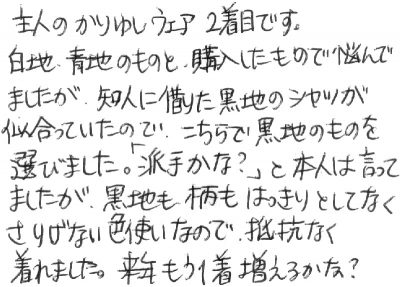 主人のかりゆしウェア 2着目です。
白地、青地のものと、購入したもので悩んで
ましたが、知人に借りた黒地のシャツが
似合っていたので、こちらで黒地のものを
選びました。「派手かな?」と本人は言って
ましたが、黒地も柄もはっきりとしてなく
さりげない色使いなので、抵抗なく
着れました。来年もう1着増えるかな?